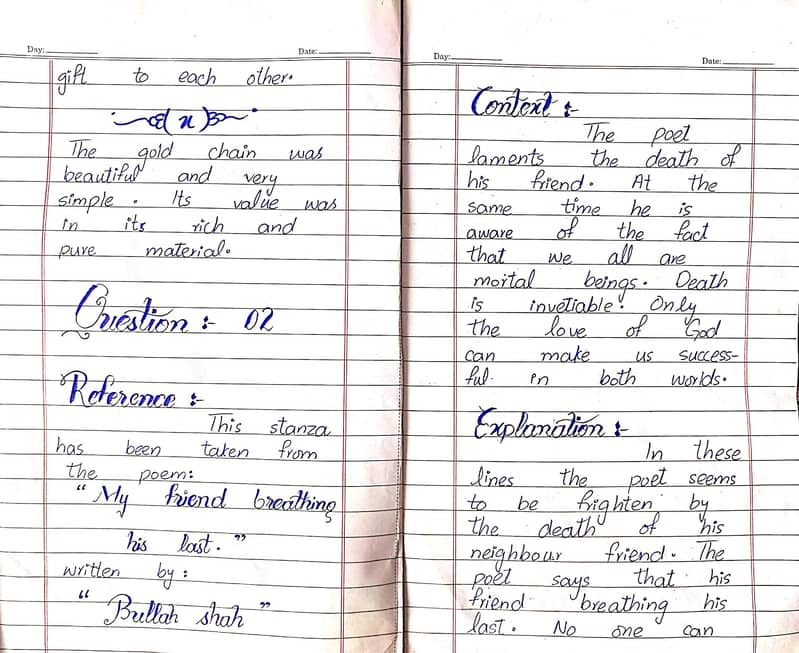 Day:
Date:
gift to each other.
(x)
The gold chain was
beautiful and very
simple. Its value was
in its rich and
pure material.
Question :- 02
Reference :-
This stanza
has been taken from
the poem:
"My friend breathing
his last."
written by:
"Bullah shah"
Day:
Date:
Context :-
The poet
laments the death of
his friend. At the
same time he is
aware of the fact
that we all are
mortal beings. Death
is invetiable. Only
the love of God
can make us success-
ful in both worlds.
Explanation :-
In these
lines the poet seems
to be frighten by
the death of his
neighbour friend. The
poet says that his
friend breathing his
last. No one can